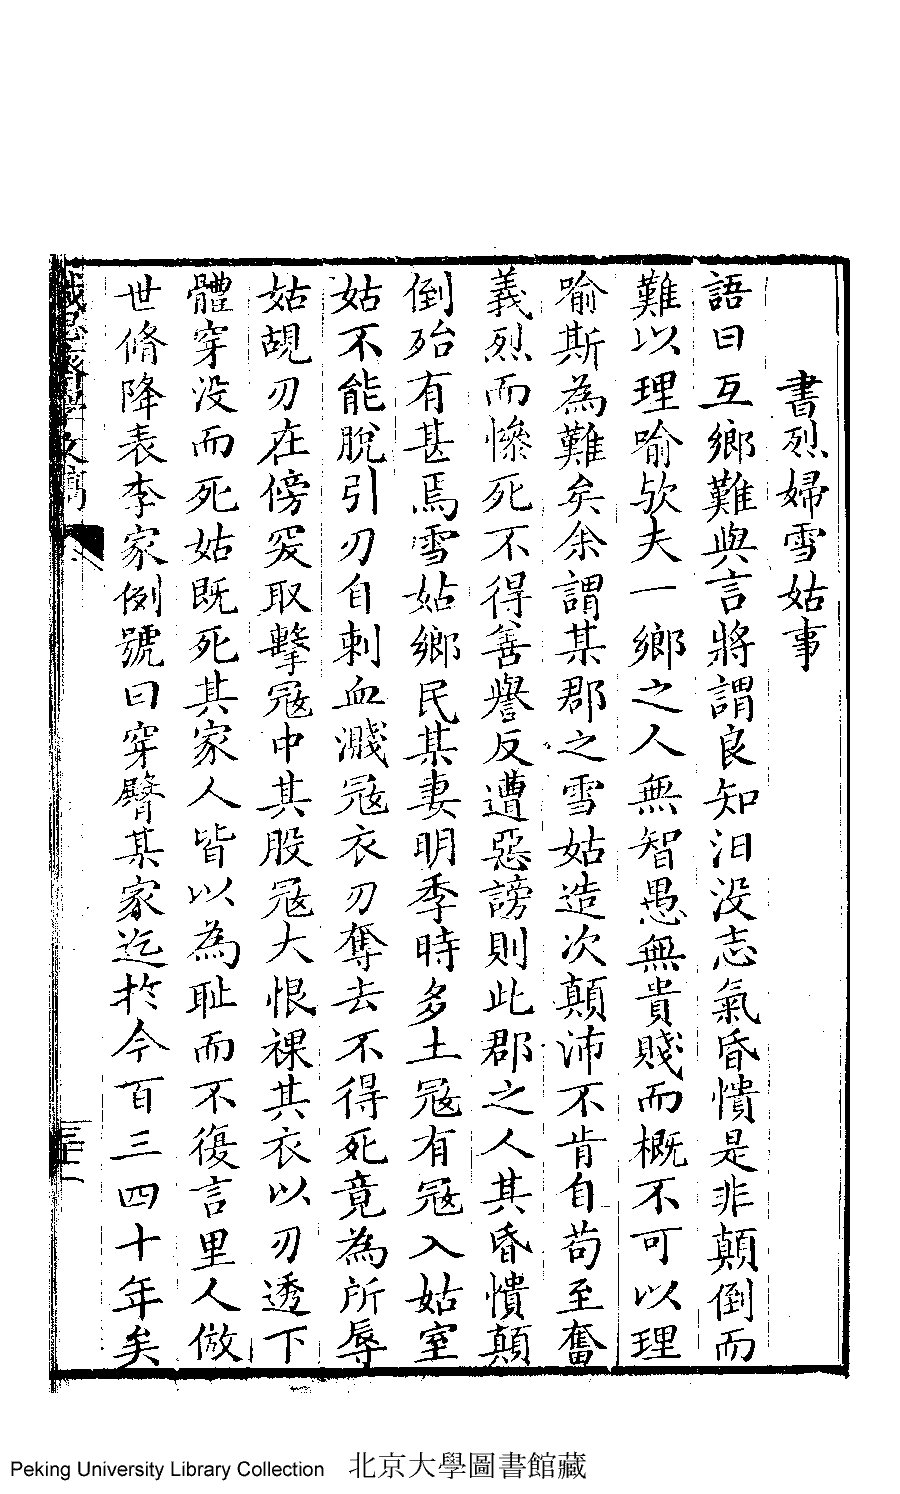 書烈婦雪姑事
語曰互鄉難與言將謂良知汩没志氣昏憒是非顛倒而
難以理喻歟夫一鄉之人無智愚無貴賤而概不可以理
喻斯為難矣余謂某郡之雪姑造次顛沛不肯自苟至奮
義烈而慘死不得善譽反遭惡謗則此郡之人其昏憒顛
倒殆有甚焉雪姑鄉民某妻明季時多土冦有冦入姑室
姑不能脫引刃自刺血濺冦衣刃奪去不得死竟為所辱
姑覘刃在傍突取擊冦中其股冦大恨裸其衣以刃透下
體穿没而死姑既死其家人皆以為恥而不復言里人倣
世脩降表李家例號曰穿臂某家迄於今百三四十年矣
思齋學文稿
Peking University Library Collection 北京大學圖書館藏